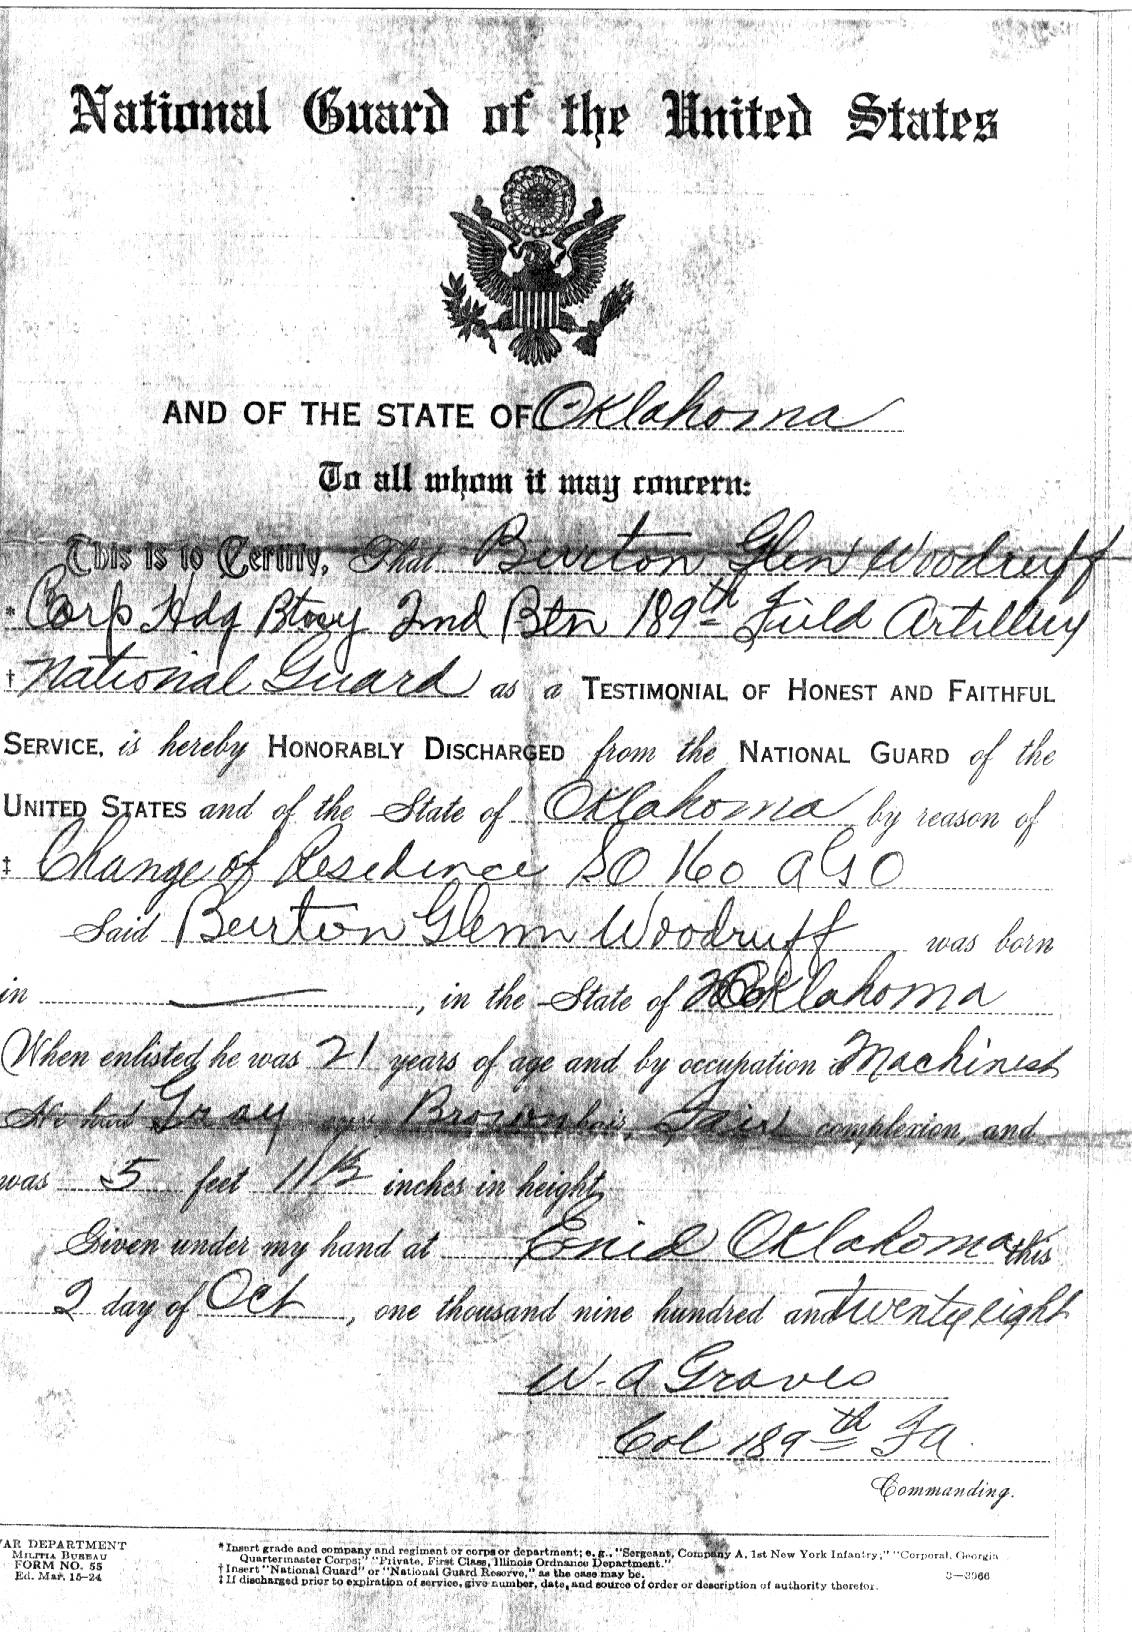 National Guard of the United States
AND OF THE STATE OF Oklahoma
To all whom it may concern:
This is to Certify, That Burton Glen Woodruff
* Corp Hdq Btry 2nd Btn 189th Field Artillery
† National Guard as a TESTIMONIAL OF HONEST AND FAITHFUL
SERVICE, is hereby HONORABLY DISCHARGED from the NATIONAL GUARD of the
UNITED STATES and of the State of Oklahoma by reason of
‡ Change of Residence SO 160 AGO
Said Burton Glenn Woodruff was born
in —, in the State of Oklahoma
When enlisted he was 21 years of age and by occupation a Machinest
He had Gray eyes, Brown hair, Fair complexion, and
was 5 feet 11 1/2 inches in height.
Given under my hand at Enid Oklahoma this
2 day of Oct, one thousand nine hundred and twenty eight
W. A Graves
Col 189th FA.
Commanding.
AR DEPARTMENT
MILITIA BUREAU
FORM NO. 55
Ed. Mar. 15-24
* Insert grade and company and regiment or corps or department; e. g., "Sergeant, Company A, 1st New York Infantry;" "Corporal, Georgia
Quartermaster Corps;" "Private, First Class, Illinois Ordnance Department."
† Insert "National Guard" or "National Guard Reserve," as the case may be.
‡ If discharged prior to expiration of service, give number, date, and source of order or description of authority therefor.
3—3066